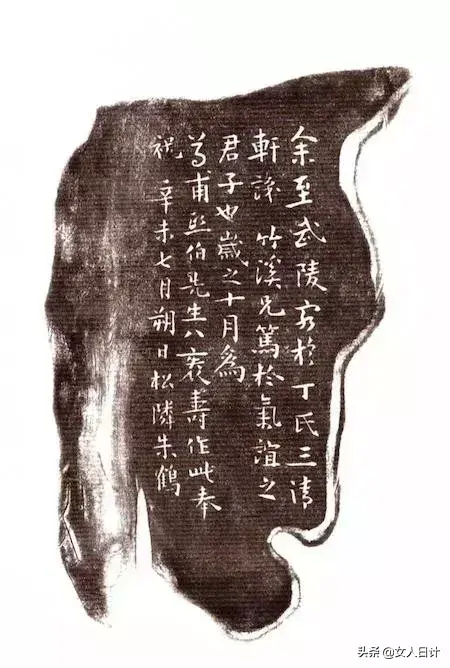 余至武陵客於丁氏三清
軒識 竹溪兄篤於氣誼之
君子也歲之十月為
尊甫熙伯先生八袠壽作此奉
祝 辛未七月朔日松隣朱鶴
头条 @女人日计